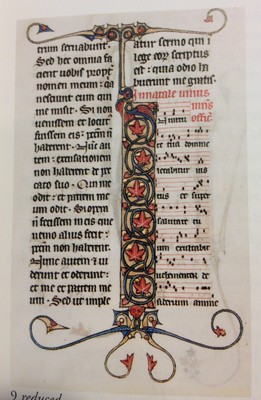 trium servabunt.
Sed hec omnia fa
cient vobis prop
nomen meum: qa
nesciunt eum qui
me misit. Si non
venissem et locut
fuissem eis: pctm n
haberent. Nunc au
tem: excusationem
non habent de pec
cato suo. Qui me
odit: et patrem me
um odit. Si opera n
fecissem in eis que
nemo alius fecit:
pctm non haberent.
Nunc autem et vi
derunt et oderunt:
et me et patrem me
um. Sed ut imple
atur sermo qui i
lege eorum scriptus
est: quia odio ha
buerunt me gratis.
In natale unius
et super
exultabit
vehementer de
siderium anime
9 reduced